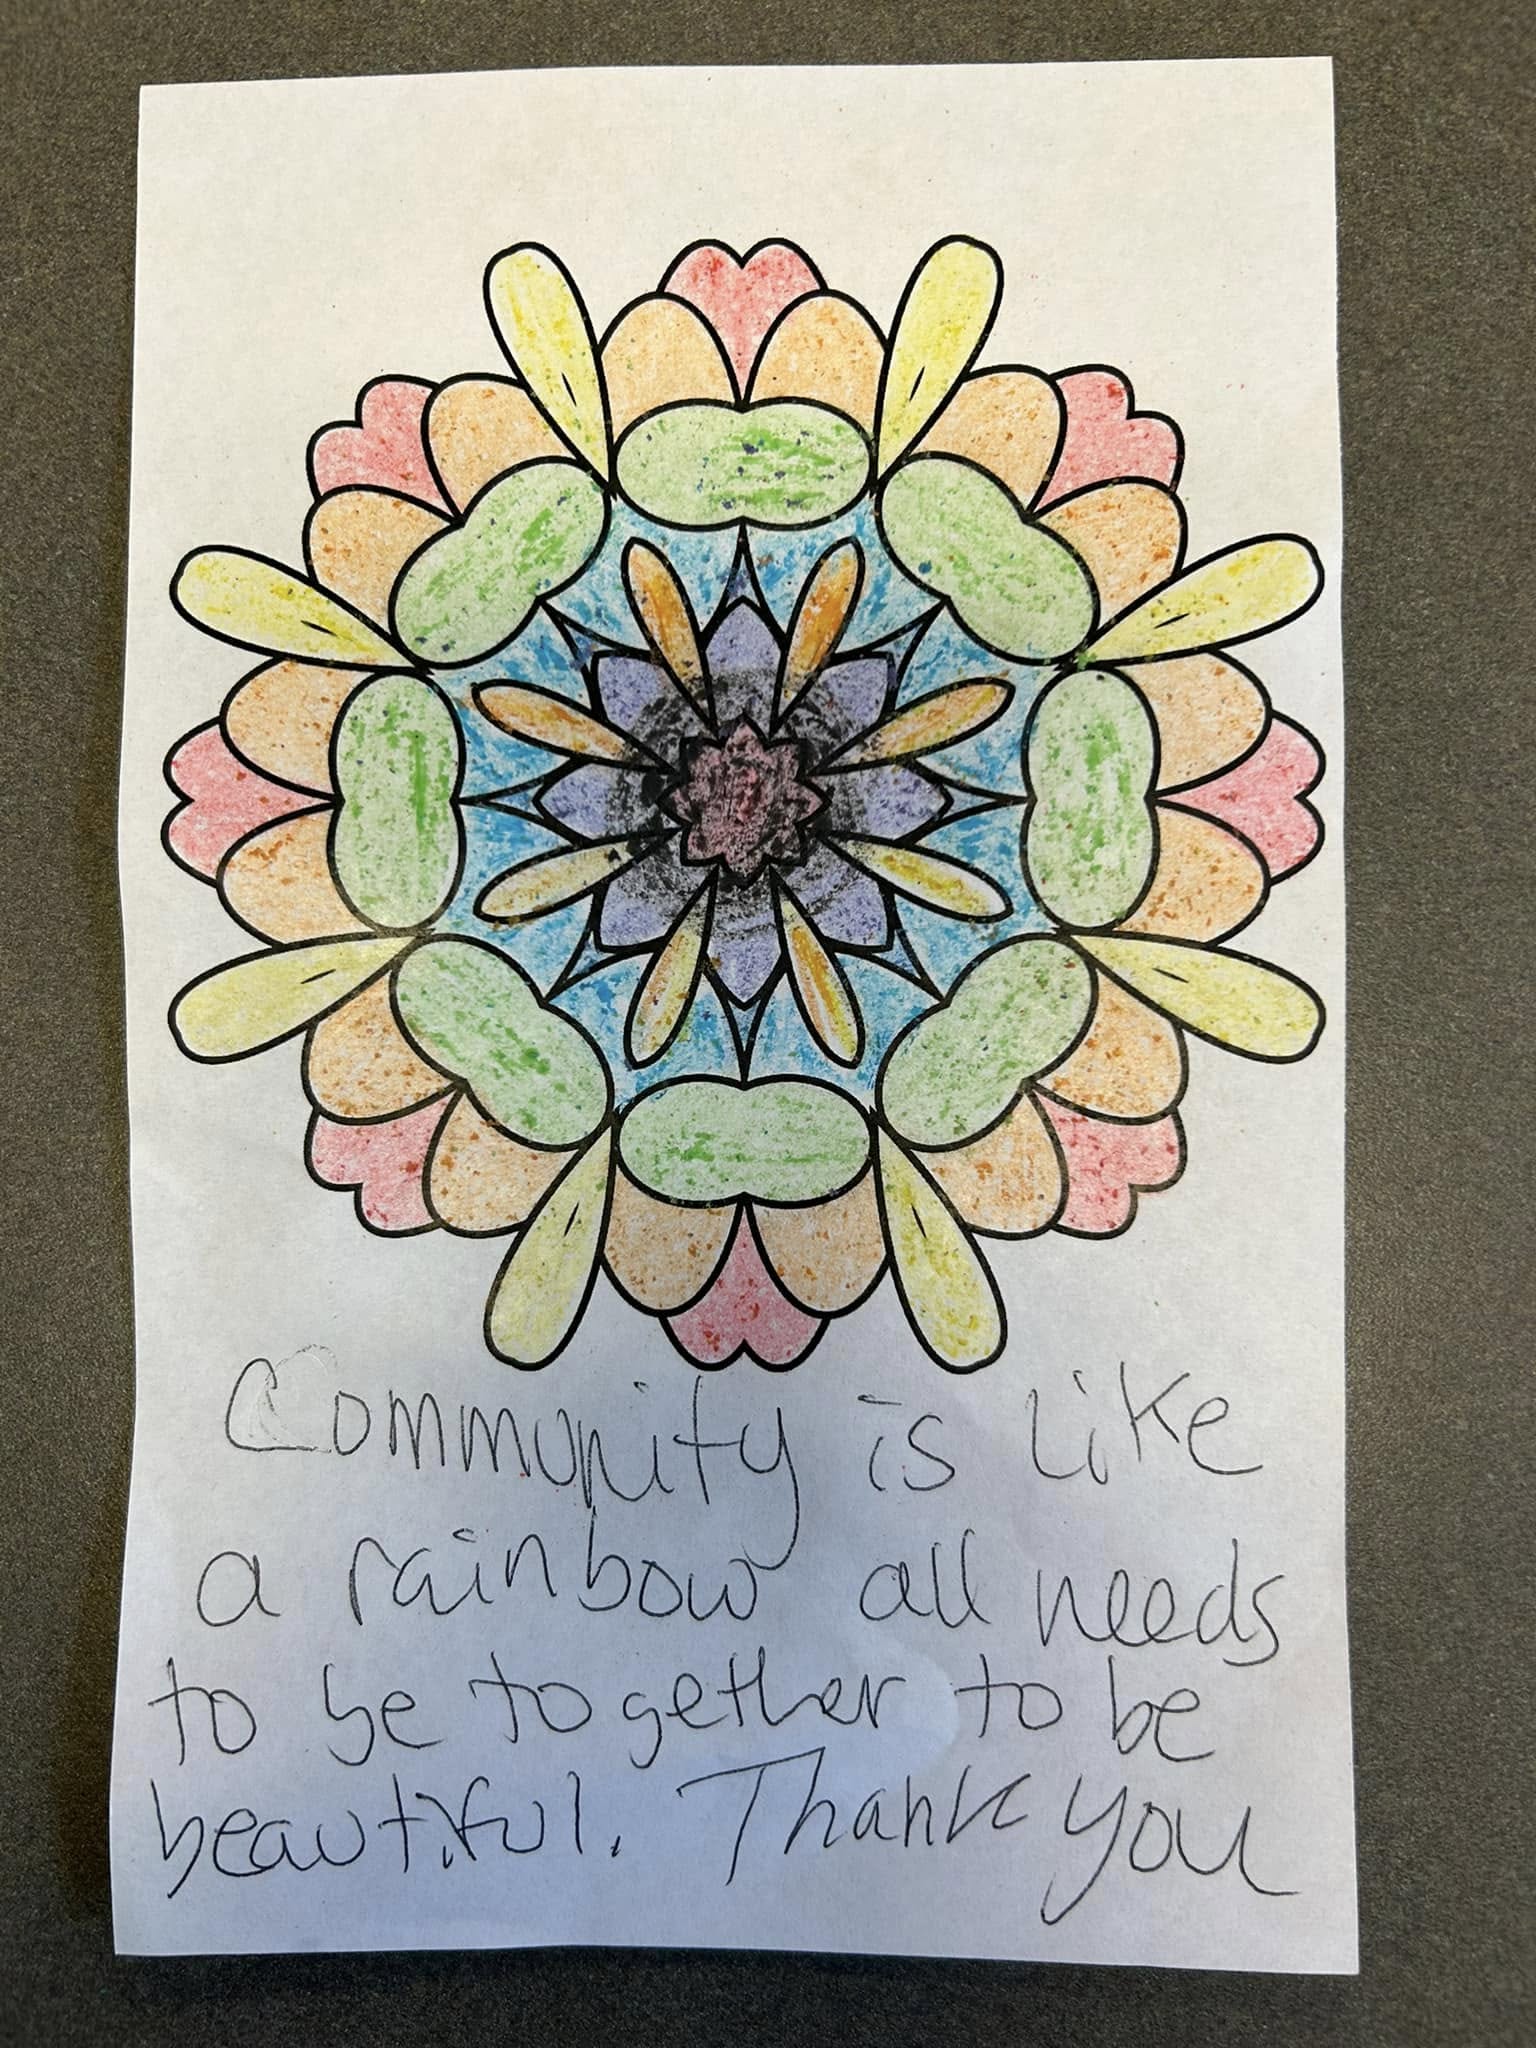 Community is like
a rainbow all needs
to be together to be
beautiful. Thank you